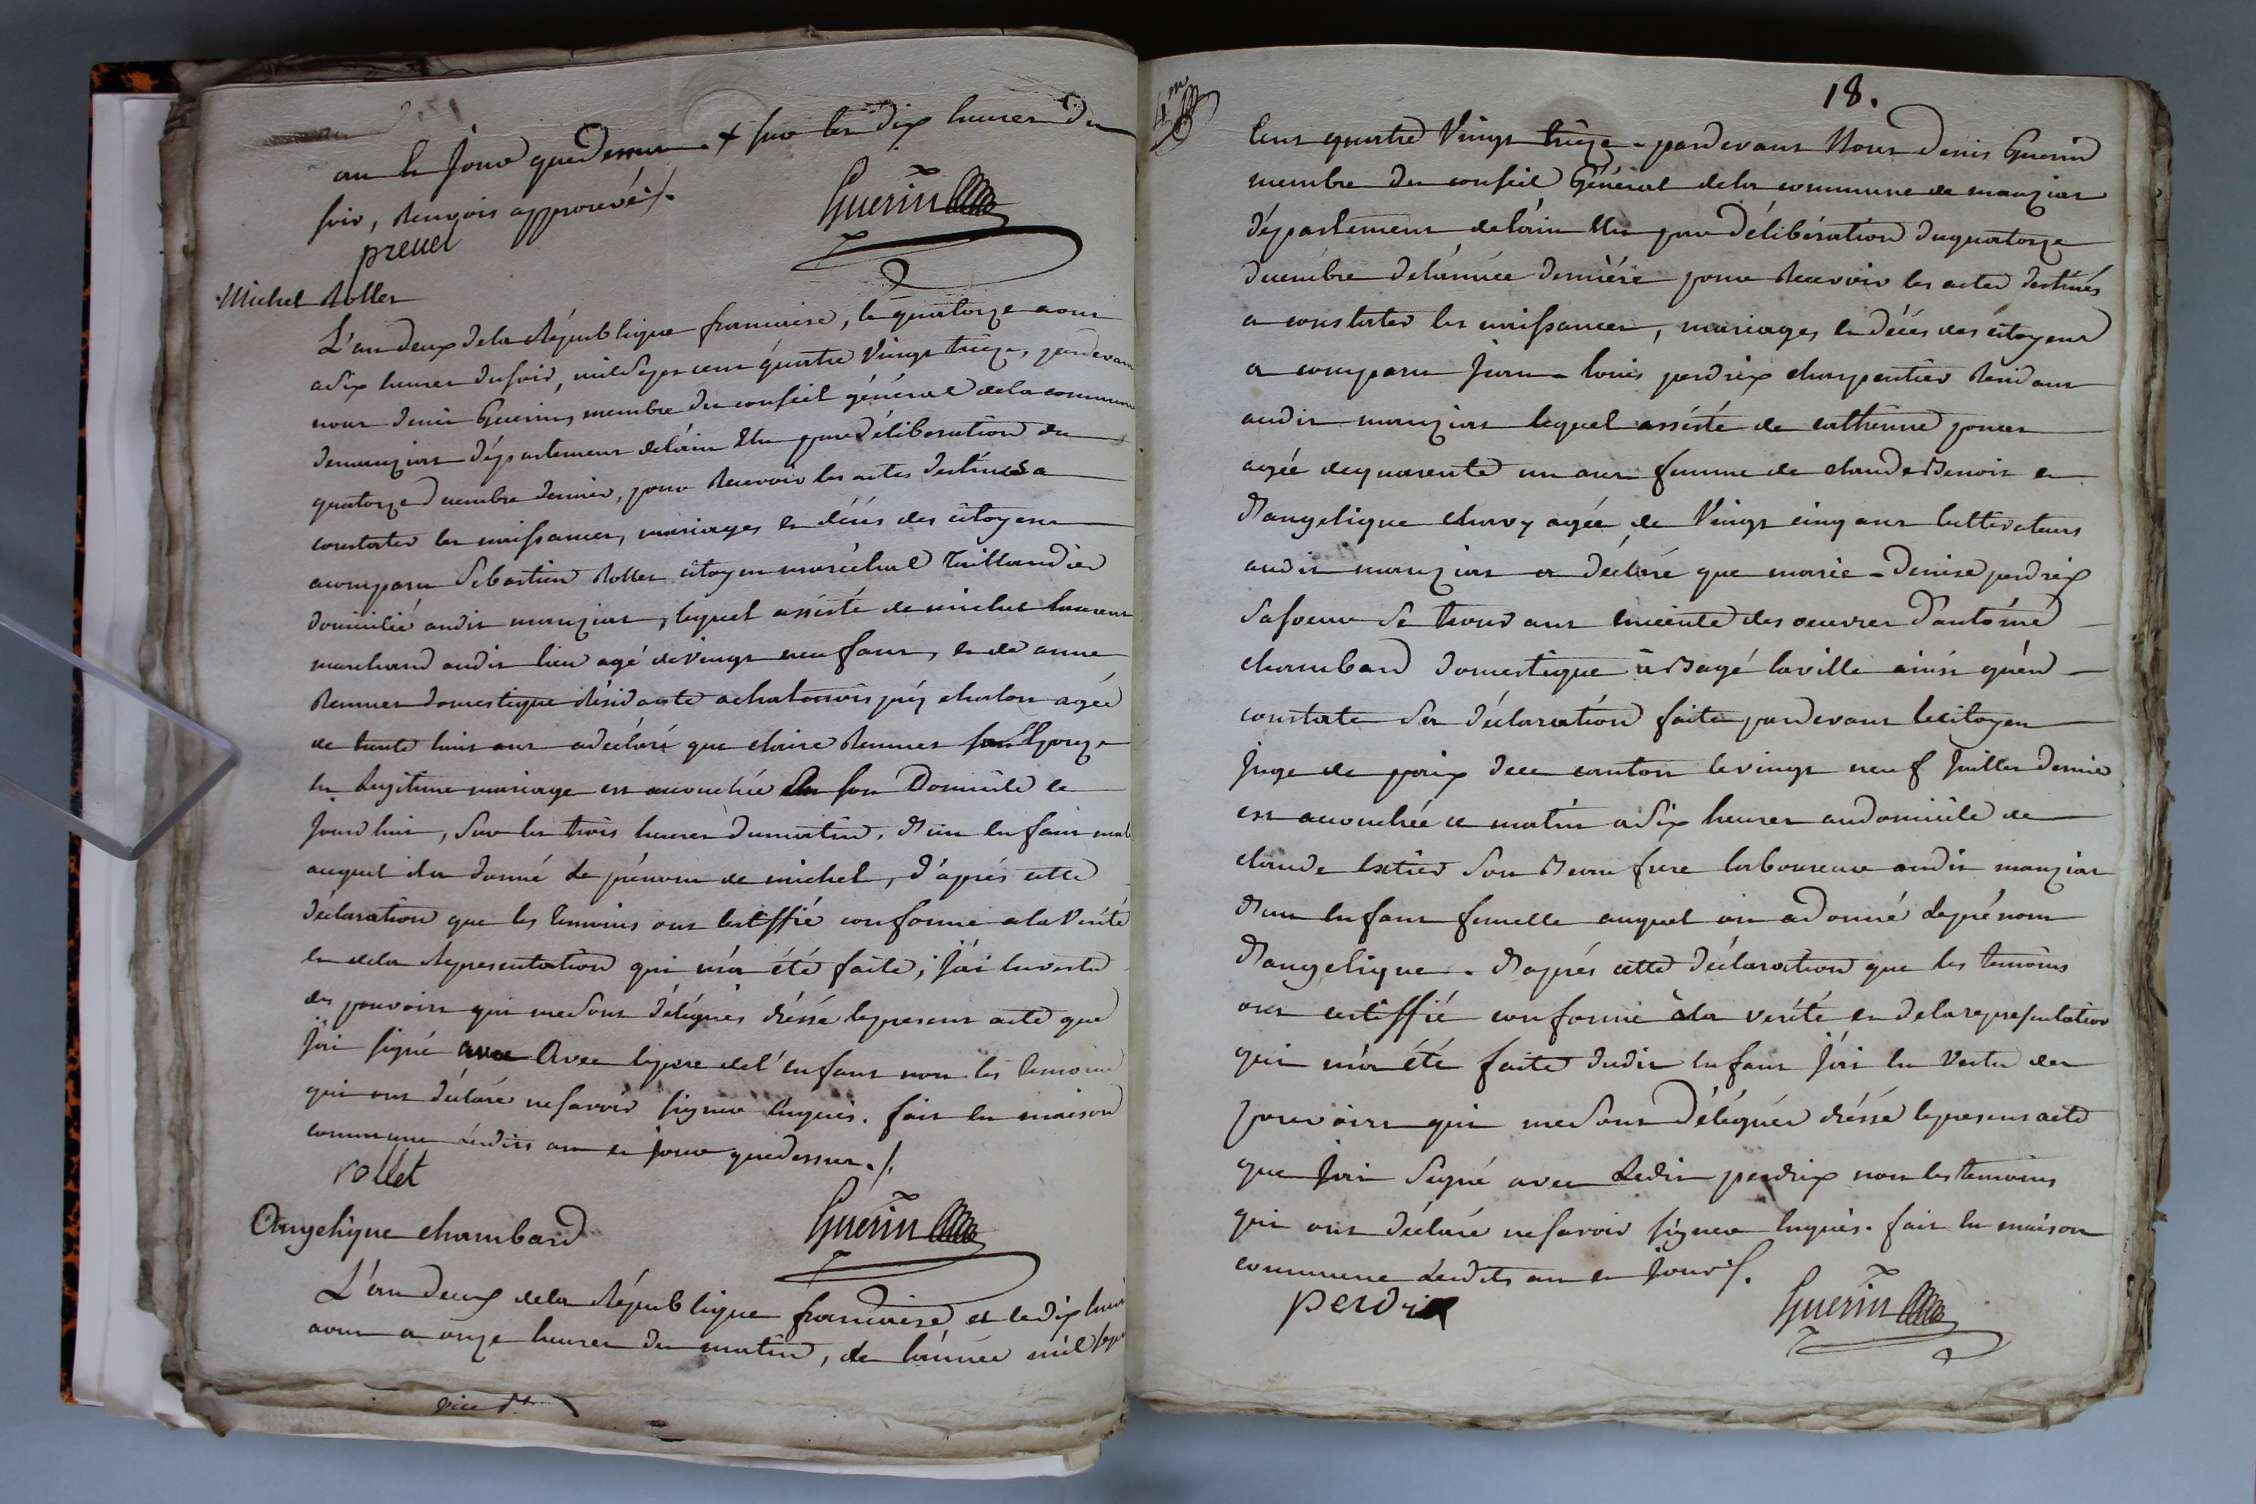 an & Jour que dessus + sur les dix heures du
soir, Renvois approuvés ./.
preuel
Guerin
Michel Rollet
L'an deux de la République francaise, le quatorze aout
a Six heures du soir, mil Sept cent quatre Vingt treize, pardevant
nous denis Guerin, membre du conseil général de la commune
de manziat département de l'ain Elu par délibération du
quatorze decembre dernier, pour Recevoir les actes destinés a
constater les naissances, mariages et décés des citoyens
a comparu Sébastien Rollet citoyen maréchal Taillandier
domicilié audit manziat, lequel assisté de michel laurent
marchand audit lieu agé de vingt neuf ans, et de anne
domestique Résidante a près chalon agée
de trente huit ans a déclaré que claire son Epouze
en Legitime mariage est accouchée en son Domicile ce
Jourd'hui, Sur les trois heures du matin, D'un Enfant male
auquel il a donné le prénom de michel, d'après cette
déclaration que les temoins ont certiffié conforme a la Vérité
et de la Representation qui m'a été faite, j'ai En vertu
des pouvoirs qui me sont délégués dréssé le present acte que
j'ai signé Avec le pere de l'enfant non les temoins
qui ont déclaré ne savoir signer Enquis. fait en maison
commune lesdits an et jour que dessus ./.
rollet
Guerin
Angelique chambard
L'an deux de la République francaise et le dix huit
aout a onze heures du matin, de l'année mil sept
18.
Cent quatre Vingt treize - pardevant Nous Denis Guerin
membre du conseil Général de la commune de manziat
département de l'ain Elu par délibération du quatorze
decembre de l'année dernière pour Recevoir les actes destinés
a constater les naissances, mariages et décés des citoyens
a comparu Jean - louis perdrix charpentier Residant
audit manziat lequel assisté de catherine
agée de quarente un ans femme de claude Benoit et
D'angelique agée de Vingt cinq ans Cultivateurs
audit manziat a déclaré que marie - Denise perdrix
Sa soeur Se trouvant enceinte des oeuvres D'antoine
chambard domestique à Bagé la ville ainsi qu'en
constate Sa déclaration faite pardevant le citoyen
Juge de paix de ce canton le vingt neuf Juillet dernier
est accouchée ce matin a Six heures au domicile de
claude Son Beau frere laboureur audit manziat
D'un Enfant femelle auquel on a donné le prénom
D'angelique. D'aprés cette déclaration que les temoins
ont certiffié conforme à la verité et de la representation
qui m'a été faite dudit Enfant j'ai En Vertu des
pouvoirs qui me sont délégués dréssé le present acte
que j'ai Signé avec Ledit perdrix non les temoins
qui ont déclaré ne savoir signer Enquis. fait En maison
commune Lesdits an et jour ./.
perdrix
Guerin